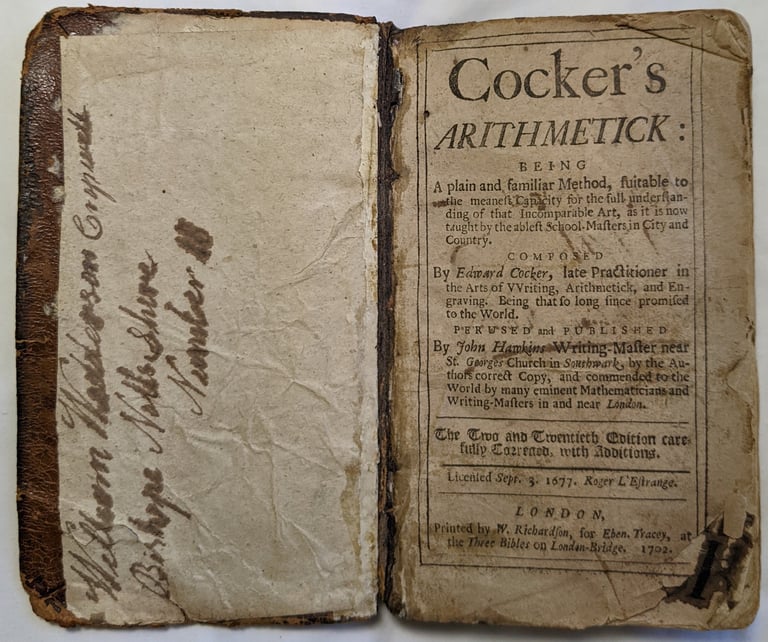 Cropwell
Bishope Notts Shire
Number
Cocker's
ARITHMETICK:
BEING
A plain and familiar Method, ſuitable to
the meaneſt Capacity for the full underſtan-
ding of that Incomparable Art, as it is now
taught by the ableſt School-Maſters in City and
Country.
COMPOSED
By Edward Cocker, late Practitioner in
the Arts of VVriting, Arithmetick, and En-
graving. Being that ſo long ſince promiſed
to the World.
PERUSED and PUBLISHED
By John Hawkins Writing-Maſter near
St. Georges Church in Southwark, by the Au-
thors correct Copy, and commended to the
World by many eminent Mathematicians and
Writing-Maſters in and near London.
The Two and Twentieth Edition care-
fully Corrected, with Additions.
Licenſed Sept. 3. 1677. Roger L'Eſtrange.
LONDON,
Printed by W. Richardſon, for Eben. Tracey, at
the Three Bibles on London-Bridge. 1702.